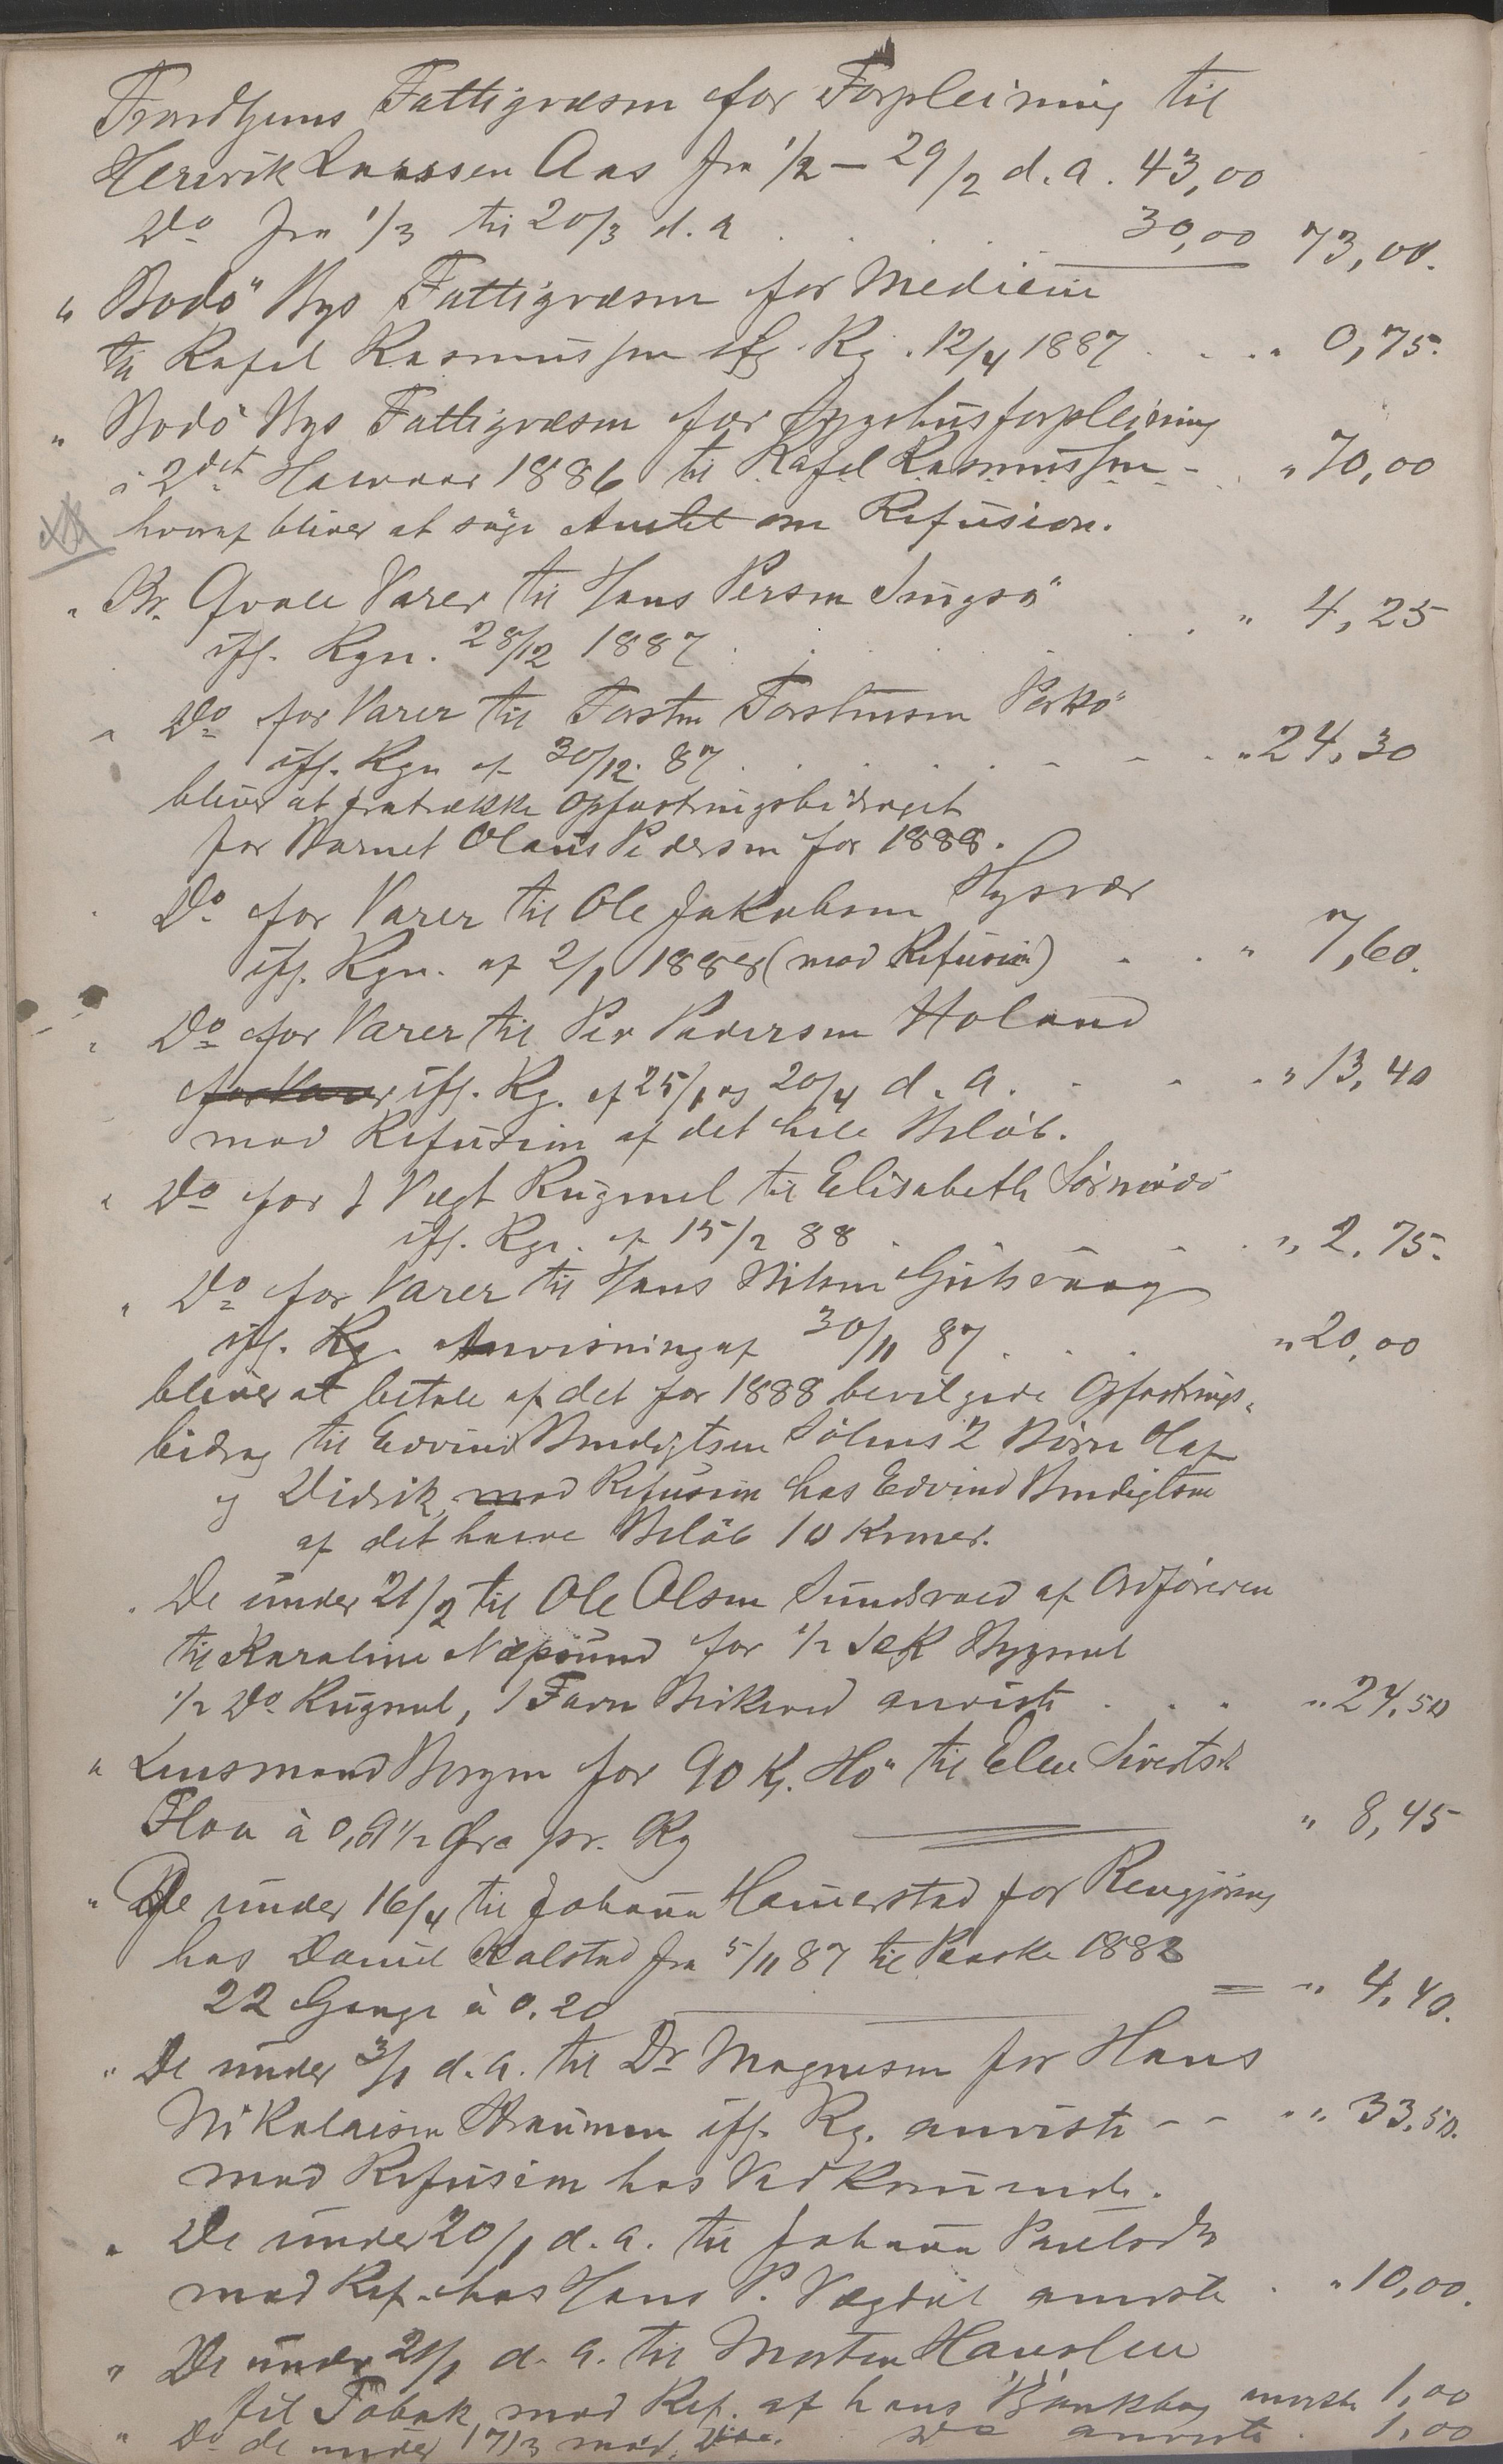 Trondhjems Fattigvæsen for Forpleining til
Henrik Larssen Aas fra 1/2 – 29/2 d. a. 43,00
Do fra 1/3 til 20/3 d. a . . . 30,00 73,00.
" Bodö Bys Fattigvæsen for Medicin
til Rafel Rasmussen ifl. Rg. 12/4 1887 . . . " 0,75.
" Bodö Bys Fattigvæsen for Sygehusforpleining
i 2det Halvaar 1886 til Rafel Rasmussen - . " 70,00
hvoraf bliver at søge Amtet om Refusion.
" Br. Qvale Varer til Hans Persen
ifl. Rgn. 28/12 1887 . . . . . " 4,25
" Do for Varer til Torsten Torstensen
ifl. Rgn af 30/12. 87 . . . . . - - . " 24,30
bliver at fratrække Opfostringsbidraget
for Barnet Olaus Pedersen for 1888.
" Do for Varer til Ole Jakobsen Hysvær
ifl. Rgn. af 2/1 1888 (mod Refusion) . . " 7,60.
" Do for Varer til Per Pedersen Holand
for Varer ifl. Rg. af 25/1 og 20/4 d. a. . . . " 13,40
mod Refusion af det hele Beløb.
" Do for 1 Vægt Rugmel til Elisabeth
ifl. Rgn. af 15/2 88 . . . . . " 2,75.
" Do for Varer til Hans Nilsen
ifl. Rg. Anvisning af 30/11 87 . . . " 20,00
bliver at betale af det for 1888 bevilgede Opfostrings-
bidrag til Edvind Bendigtsen 2 Børn Olaf
og Didrik, mod Refusion hos Edvind Bendigtsen
af det halve Beløb 10 Kroner.
" De under 21/2 til Ole Olsen Sundsvold af Ordføreren
til Karoline for 1/2 Sæk Bygmel
1/2 Do Rugmel, 1 Favn Birkeved anviste . . . " 24,50
" Lensmand Borgen for 90 Kg. Hö til Elen Sivertsd.
Floa à 0,9 1/2 Øre pr. Kg " 8,45
" De under 16/4 til Johanna Hamerstad for Rengjøring
hos Daniel Kalstad fra 5/11 87 til Paaske 1888
22 Gange à 0.20 = " 4,40.
" De under 3/1 d. a. til Dr Magnesen for Hans
Nikolaisen Straumen ifl. Rg. anviste - - . " 33,50.
mod Refusion hos Vedkommende.
" De under 20/1 d. a. til Johanna Paulsdtr
mod Ref. hos Hans P. anviste . " 10,00.
" De under 21/1 d. a. til Morten Hanslien
til Tobak mod Ref. af hans Bankbog anviste 1,00
" Do de under 17/3 mod Do anviste . 1,00